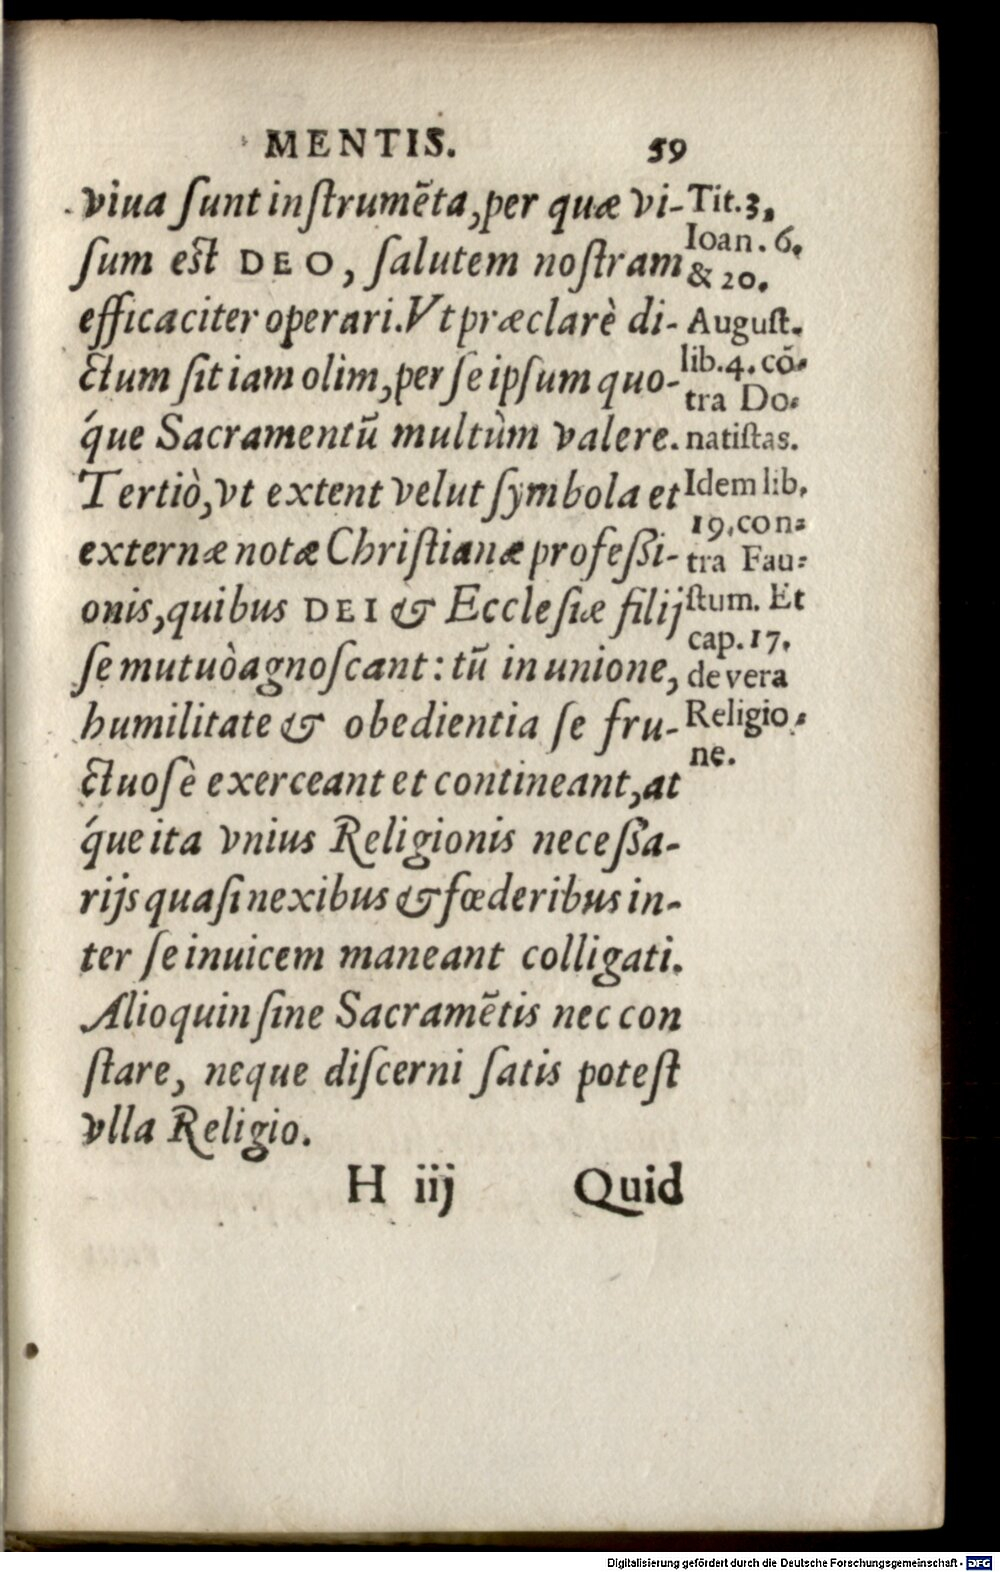 MENTIS. 59
viua sunt instrumẽta, per quæ vi-
sum est DEO, salutem nostram
efficaciter operari. Vt præclarè di-
ctum sit iam olim, per se ipsum quo-
q́ue Sacramentũ multùm valere.
Tertiò, vt extent velut symbola et
externæ notæ Christianæ professi-
onis, quibus DEI & Ecclesiæ filij
se mutuò agnoscant: tũ in unione,
humilitate & obedientia se fru-
ctuosè exerceant et contineant, at
q́ue ita vnius Religionis necessa-
rijs quasi nexibus & fœderibus in-
ter se inuicem maneant colligati.
Alioquin sine Sacramẽtis nec con
stare, neque discerni satis potest
vlla Religio.
Tit. 3.
Ioan. 6.
& 20.
August.
lib. 4. cō-
tra Do-
natistas.
Idem lib.
19. con-
tra Fau-
stum. Et
cap. 17.
de vera
Religio-
ne.
H iij Quid
Digitalisierung gefördert durch die Deutsche Forschungsgemeinschaft - DFG